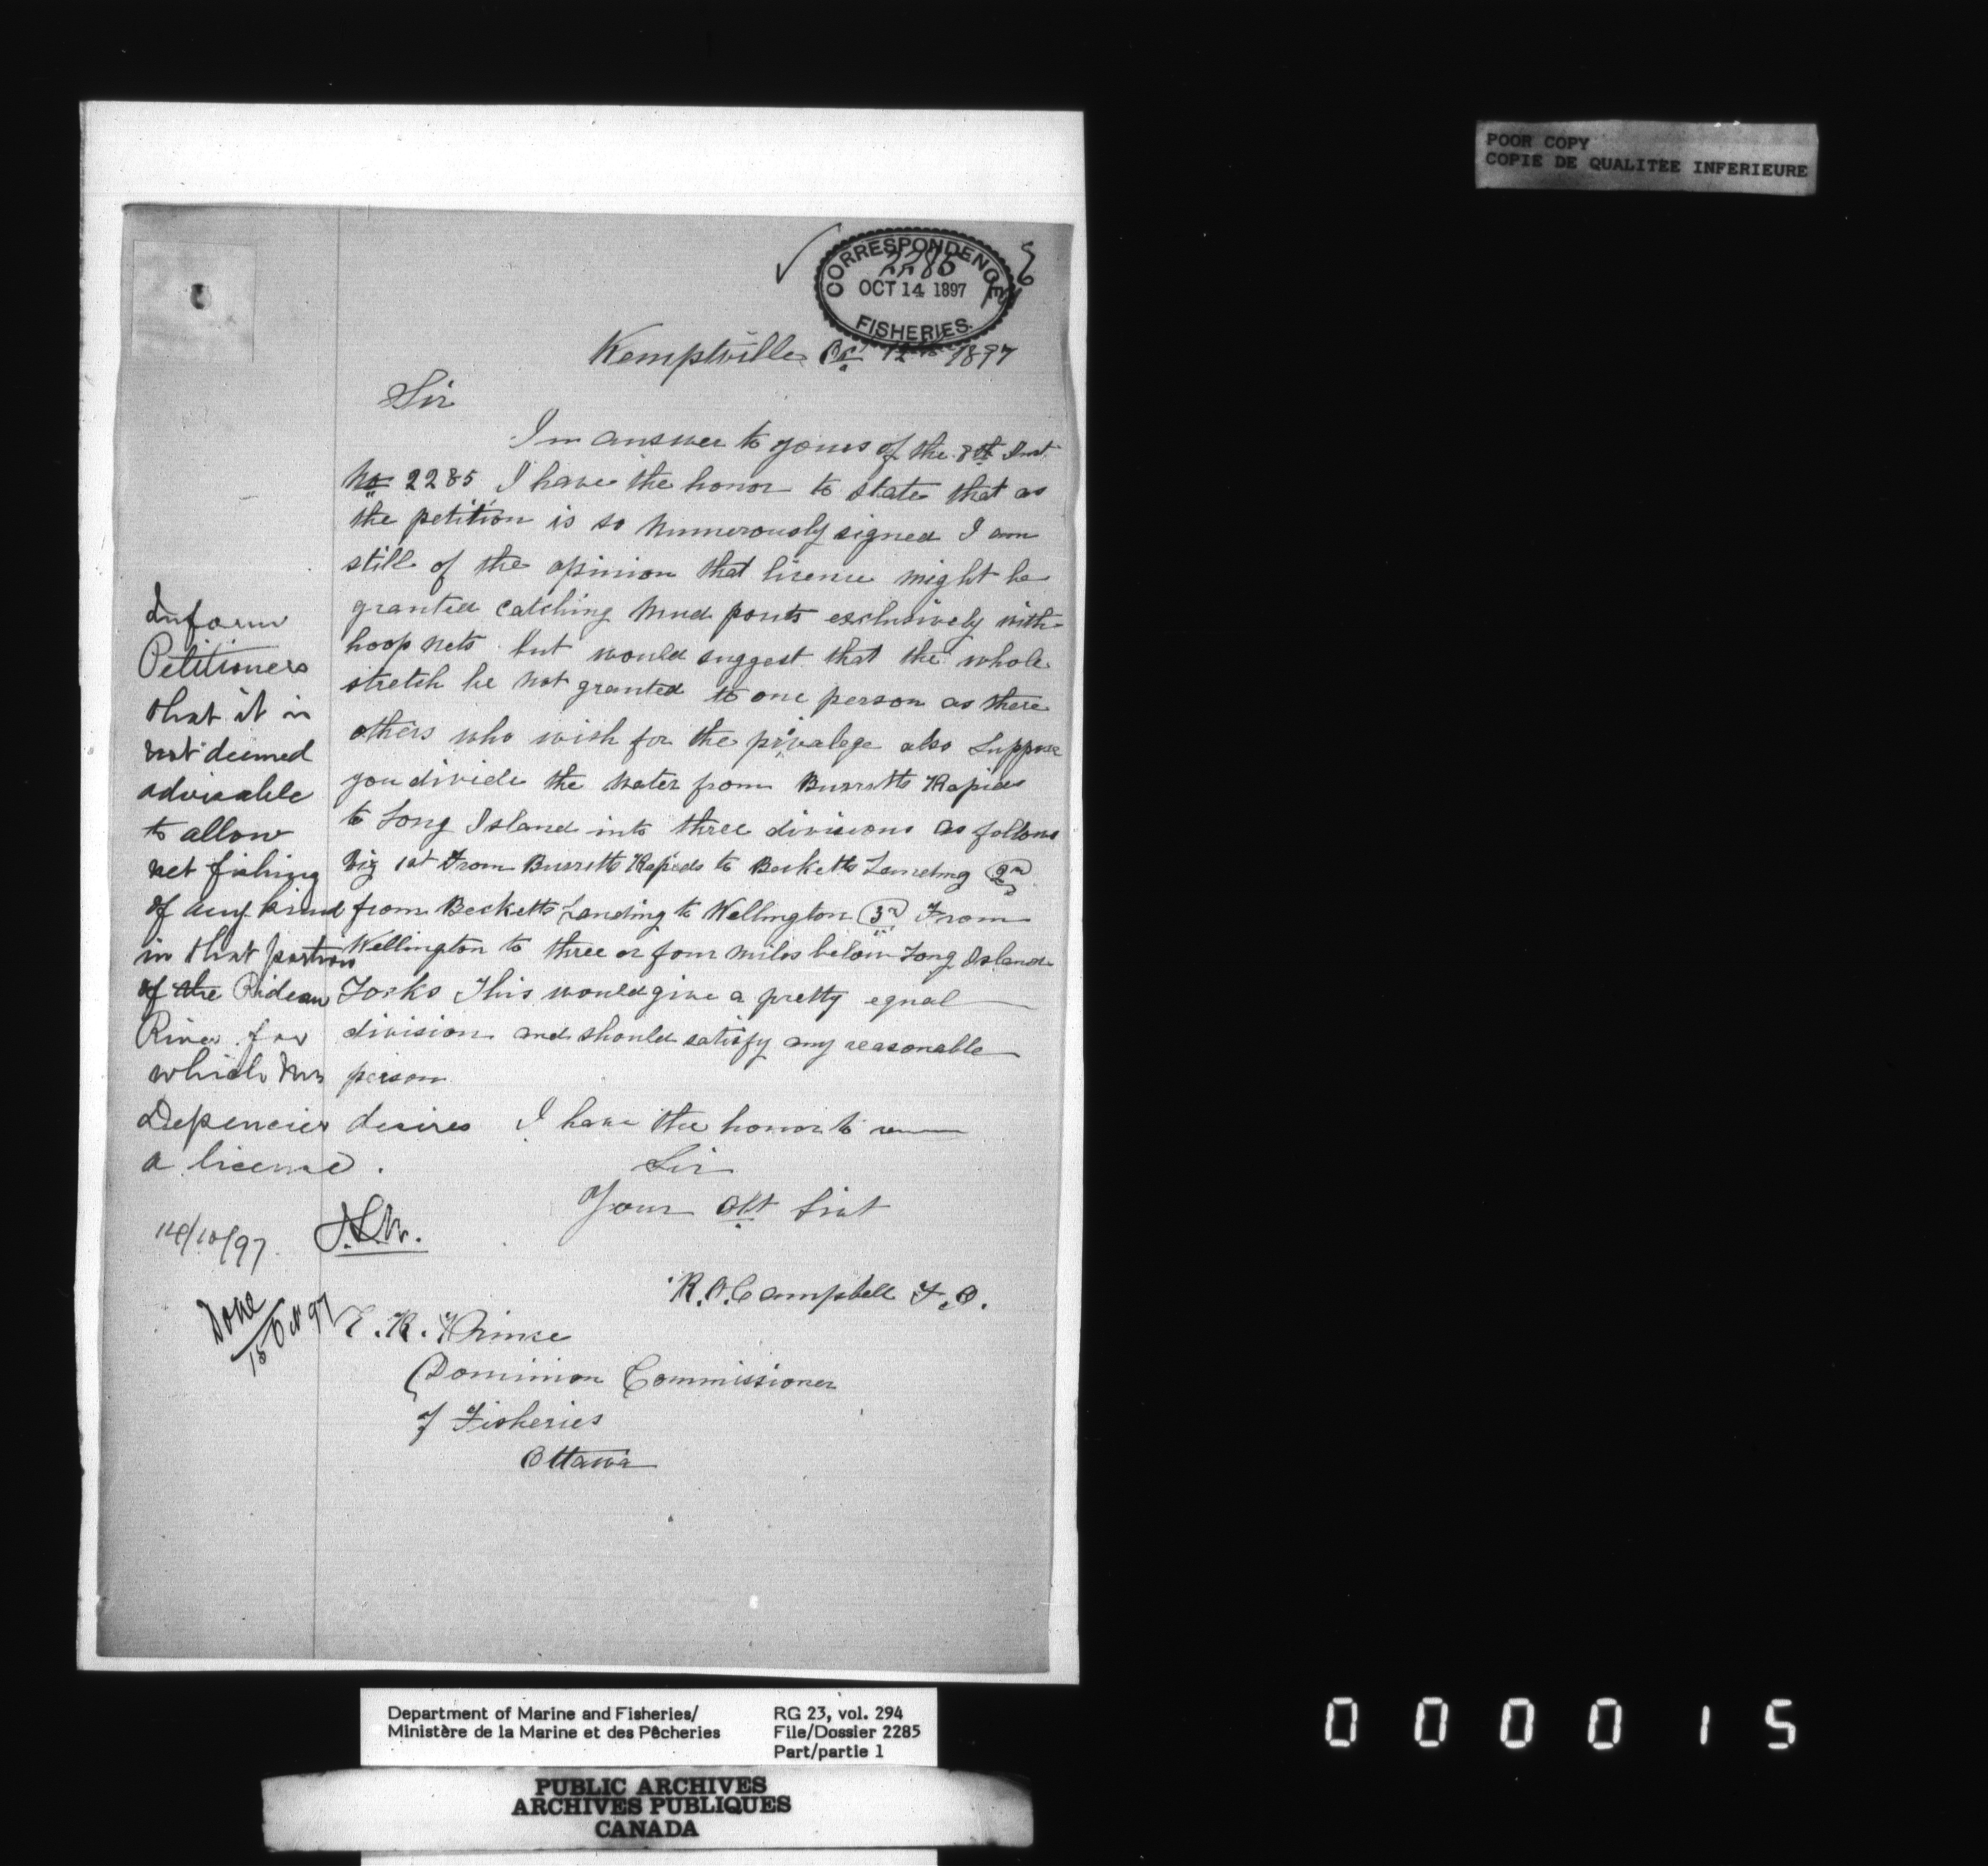 POOR COPY
COPIE DE QUALITEE INFERIEURE
CORRESPONDENCE
2285
OCT 14 1897
FISHERIES.
Kemptville Oct 12th 1897
Sir
In answer to yours of the 8th Inst
No 2285 I have the honor to state that as
the petition is so numerously signed I am
still of the opinion that license might be
granted catching mud pouts exclusively with
hoop nets but would suggest that the whole
stretch be not granted to one person as there
others who wish for the privalege also Suppose
you divide the water from Burritts Rapids
to Long Island into three divisions as follows
viz 1st From Burritts Rapids to Becketts Landing 2nd
from Becketts Landing to Wellington 3rd From
Wellington to three or four miles below Long Island
Locks This would give a pretty equal
division and should satisfy any reasonable
person
I have the honor to
Sir
Your Obt Srvt
R.O. Campbell F.O.
E. K. Prince
Dominion Commissioner
of Fisheries
Ottawa
Inform
Petitioners
that it is
not deemed
advisable
to allow
net fishing
of any kind
in that portion
of the Rideau
River for
which Mr
Depencier desires
a license.
14/10/97.
Done
15 Oct 97
Department of Marine and Fisheries/
Ministère de la Marine et des Pêcheries
RG 23, vol. 294
File/Dossier 2285
Part/partie 1
PUBLIC ARCHIVES
ARCHIVES PUBLIQUES
CANADA
000015